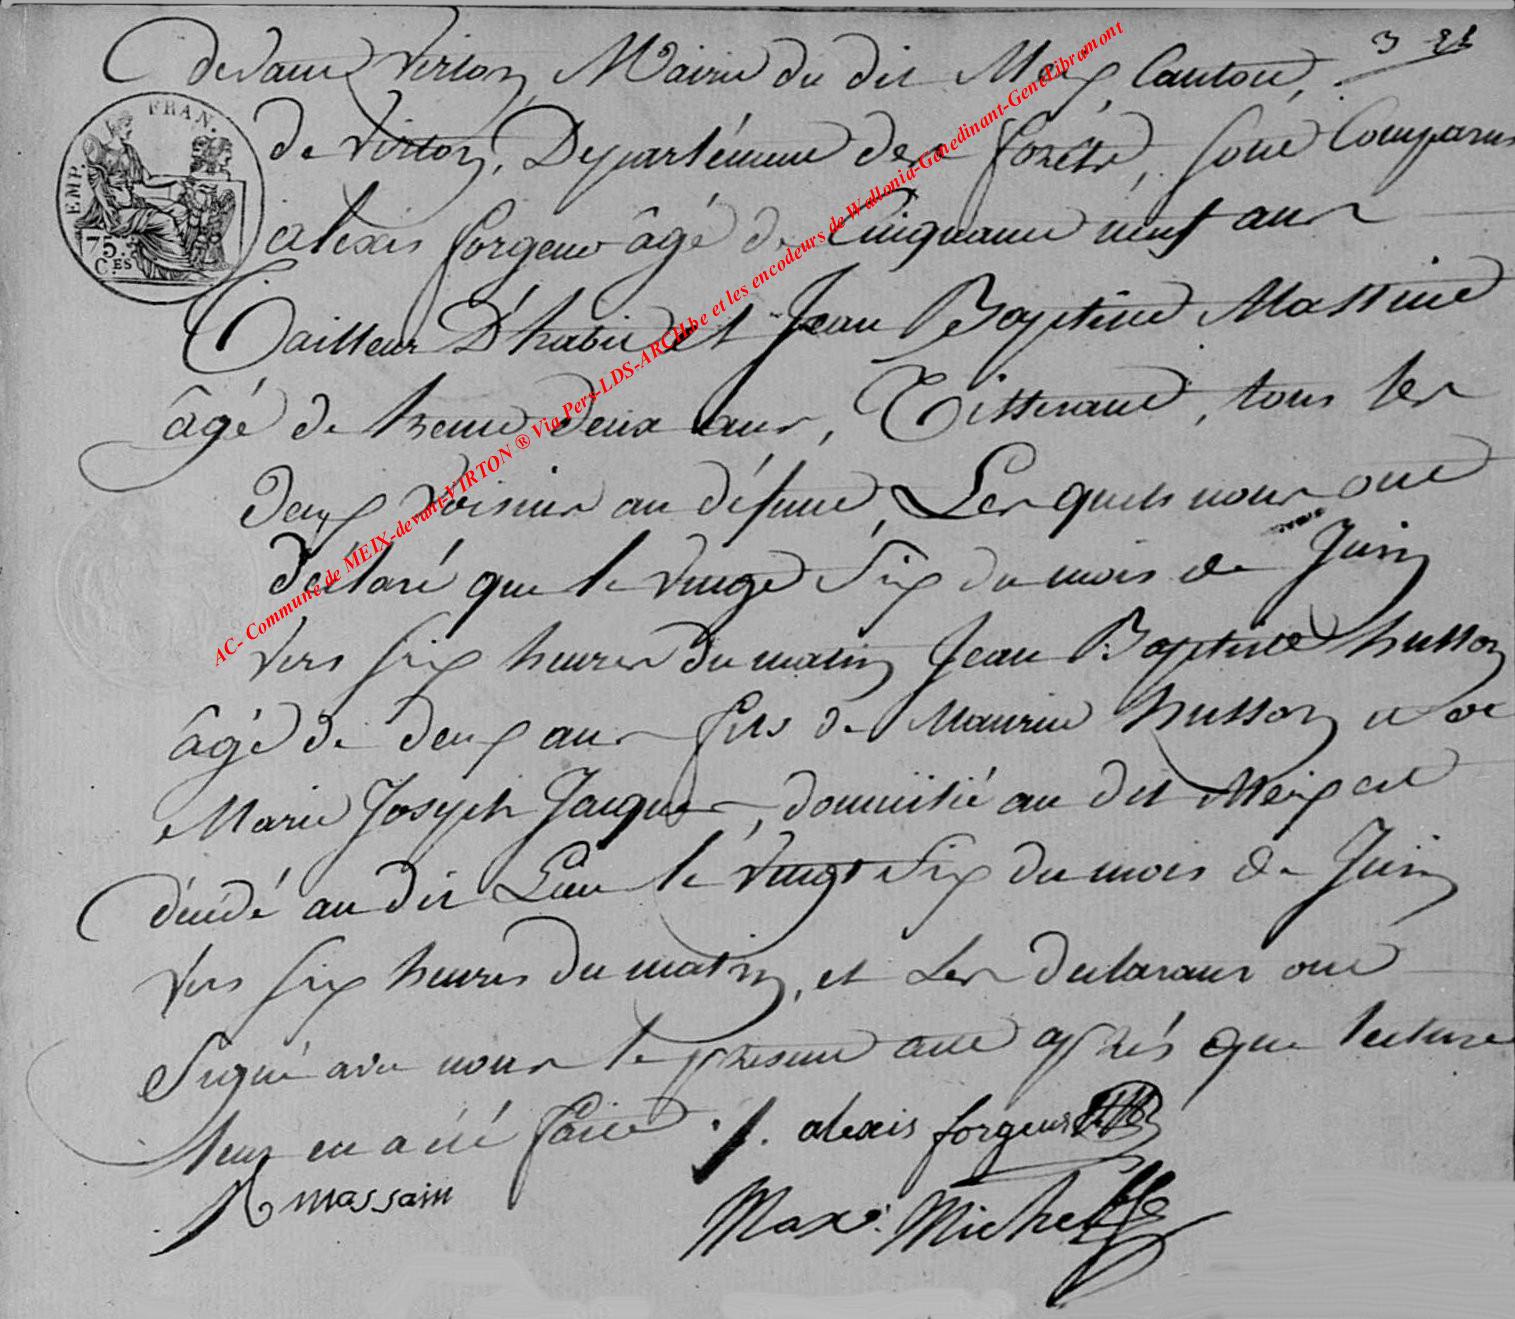 devant Virton, Mairie du dit Meix, Canton,
de Virton, Département des forêts, sont Comparus
alexis forgeur âgé de Cinquante neuf ans
Tailleur D'habit et Jean Baptiste Massine
âgé de trente deux ans, Tisserand, tous les
deux voisins au défunt, Lesquels nous ont
déclaré que le vingt Six du mois de Juin
vers six heures du matin Jean Baptiste husson
âgé de deux ans fils de Maurice husson et de
Marie Joseph Jacques, domicilié au dit Meix est
décédé au dit Lieu le vingt Six du mois de Juin
vers six heures du matin, et Les declarans ont
Signé avec nous le present acte après que lecture
leur en a été faite. alexis forgeur
massain
Max. Michel
FRAN.
EMP.
75.
C.ES
AC- Commune de MEIX-devant-VIRTON ® Via Pers-LDS-ARCH.be et les encodeurs de Wallonia-Genedinant-GeneLibramont